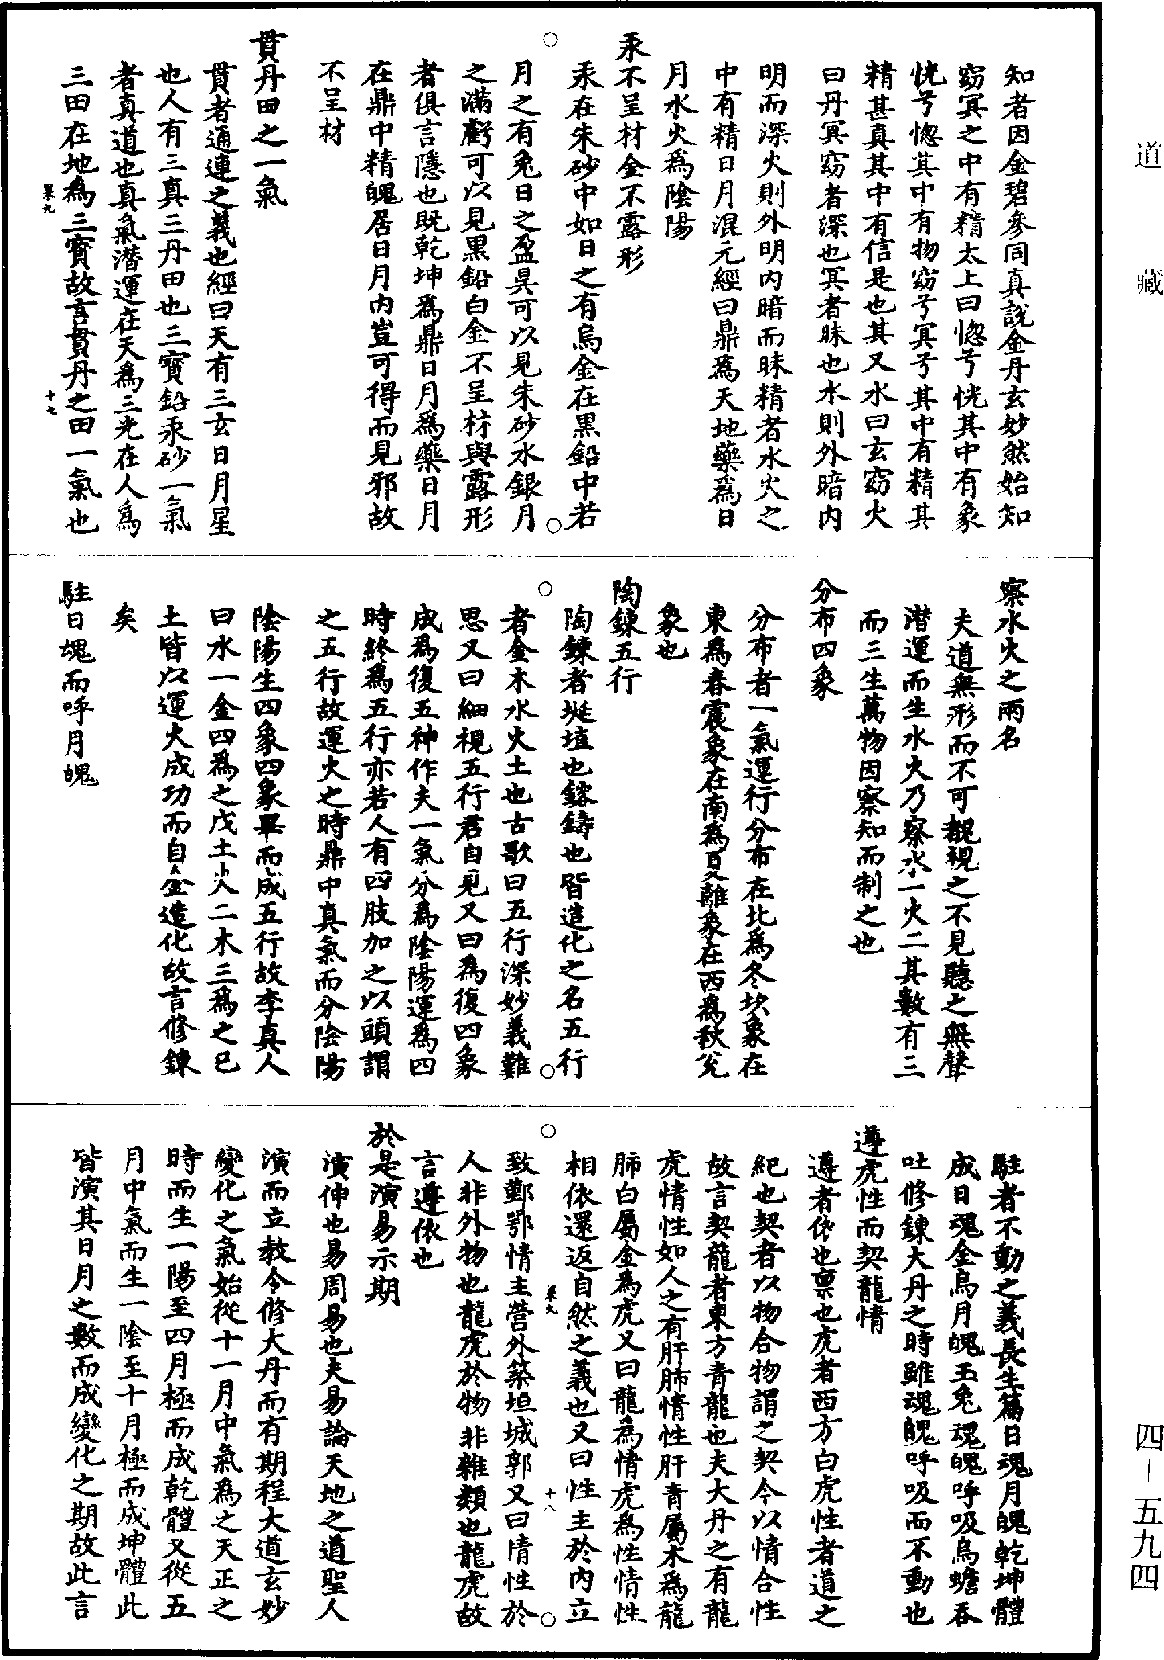 道藏
知者因金碧參同真說金丹玄妙然始知
窈冥之中有精太上曰惚兮恍其中有象
恍兮惚其中有物窈兮冥兮其中有精其
精甚真其中有信是也其又水曰玄窈火
曰丹冥窈者深也冥者昧也水則外暗內
明而深火則外明內暗而昧精者水火之
中有精日月混元經曰鼎為天地藥為日
月水火為陰陽
汞不呈材金不露形
汞在朱砂中如日之有烏金在黑鉛中若
月之有兔日之盈昃可以見朱砂水銀月
之滿虧可以見黑鉛白金不呈材與露形
者俱言隱也既乾坤為鼎日月為藥日月
在鼎中精魄居日月內豈可得而見邪故
不呈材
貫丹田之一氣
貫者通連之義也經曰天有三玄日月星
也人有三真三丹田也三寶鉛汞砂一氣
者真道也真氣潛運在天為三光在人為
三田在地為三寶故言貫丹之田一氣也
察水火之兩名
夫道無形而不可覩視之不見聽之無聲
潛運而生水火乃察水一火二其數有三
而三生萬物因察知而制之也
分布四象
分布者一氣運行分布在北為冬坎象在
東為春震象在南為夏離象在西為秋兌
象也
陶鍊五行
陶鍊者埏埴也鎔鑄也皆造化之名五行
者金木水火土也古歌曰五行深妙義難
思又曰細視五行君自見又曰為復四象
成為復五神作夫一氣分為陰陽運為四
時終為五行亦若人有四肢加之以頭謂
之五行故運火之時鼎中真氣而分陰陽
陰陽生四象四象畢而成五行故李真人
曰水一金四為之戊土火二木三為之已
土皆以運火成功而自金造化故言修鍊
矣
駐日魂而呼月魄
駐者不動之義長生篇曰魂月魄乾坤體
成日魂金烏月魄玉兔魂魄呼吸烏蟾吞
吐修鍊大丹之時雖魂魄呼吸而不動也
遵虎性而契龍情
遵者依也禀也虎者西方白虎性者道之
紀也契者以物合物謂之契今以情合性
故言契龍者東方青龍也夫大丹之有龍
虎情性如人之有肝肺情性肝青屬木為龍
肺白屬金為虎又曰龍為情虎為性情性
相依還返自然之義也又曰性主於內立
致鄞鄂情主營外築垣城郭又曰情性於
人非外物也龍虎於物非雜類也龍虎故
言遵依也
於是演易示期
演伸也易周易也夫易論天地之道聖人
演而立教今修大丹而有期程大道玄妙
變化之氣始從十一月中氣為之天正之
時而生一陽至四月極而成乾體又從五
月中氣而生一陰至十月極而成坤體此
皆演其日月之數而成變化之期故此言
四－五九四